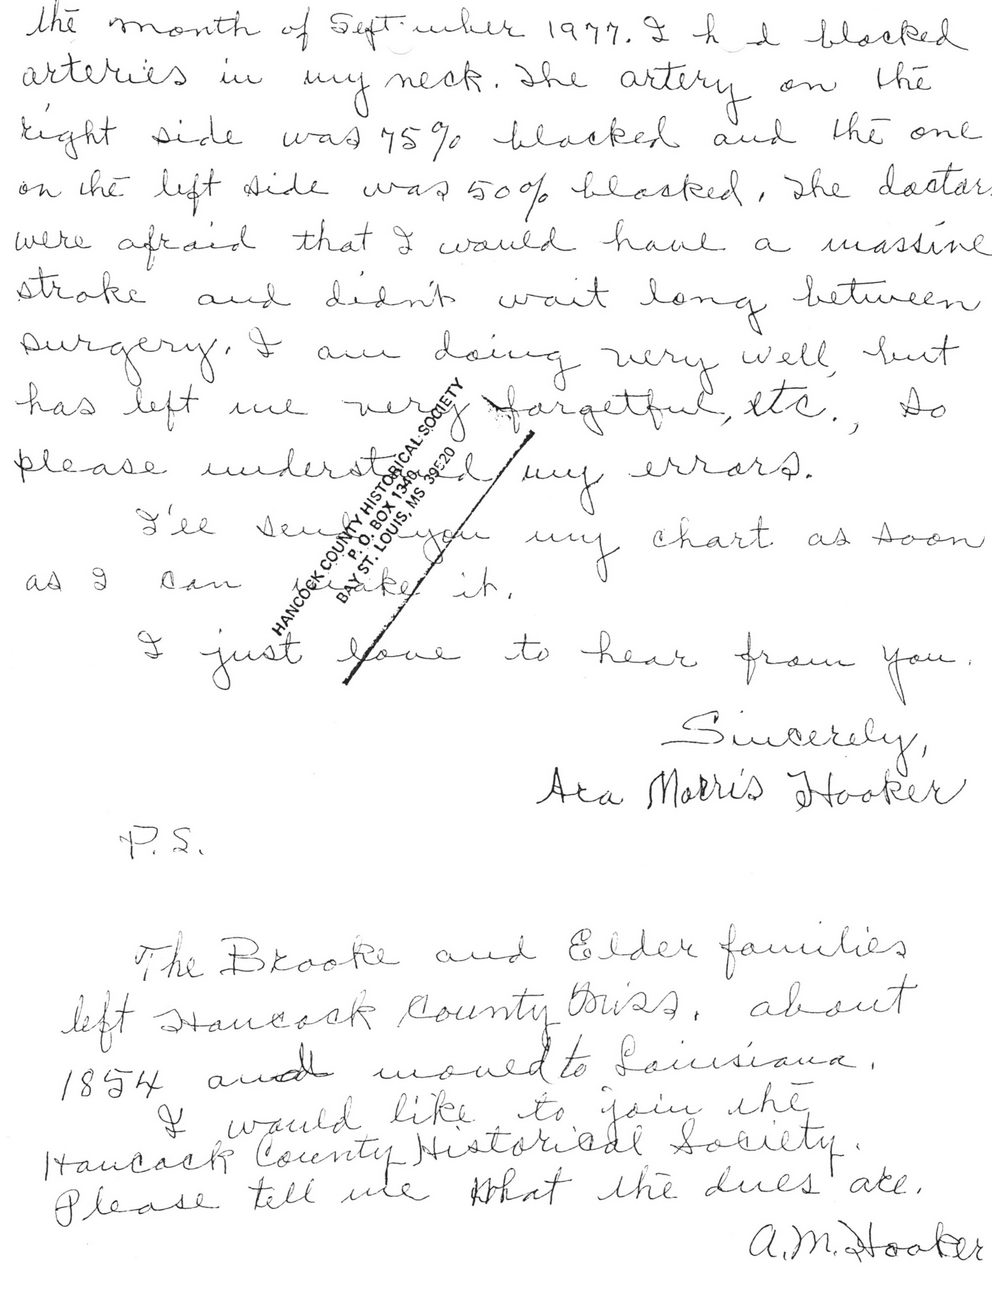 the month of September 1977. I had blocked
arteries in my neck. The artery on the
right side was 75% blocked and the one
on the left side was 50% blocked. The doctors
were afraid that I would have a massive
stroke and didn't wait long between
surgery. I am doing very well, but
has left me very forgetful, etc., so
please understand my errors.
I'll send you my chart as soon
as I can make it.
I just love to hear from you.
HANCOCK COUNTY HISTORICAL SOCIETY
P. O. BOX 1340
BAY ST. LOUIS, MS 39520
Sincerely,
Ara Morris Hooker
P.S.
The Brooke and Elder families
left Hancock County Miss. about
1854 and moved to Louisiana.
I would like to join the
Hancock County Historical Society.
Please tell me what the dues are.
A.M. Hooker